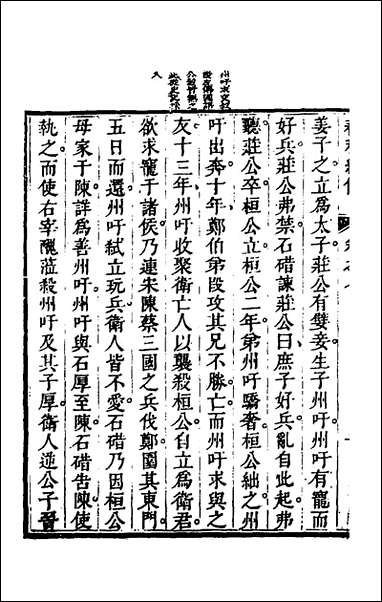 州吁求交段
公穀皆無之
入
春秋紀傳
姜子之立爲太子莊公有嬖妾生子州吁州吁有寵而
好兵莊公弗禁石碏諫莊公曰庶子好兵亂自此起弗
聽莊公卒桓公立桓公二年弟州吁驕奢桓公絀之州
吁出奔十年鄭伯弟段攻其兄不勝亡而州吁求與之
友十三年州吁收聚衛亡人以襲殺桓公自立爲衛君
欲求寵于諸侯乃連朱陳蔡三國之兵伐鄭圍其東門
五日而還州吁弑立玩兵衛人皆不愛石碏乃因桓公
母家于陳詳爲善州吁州吁與石厚至陳石碏告陳使
執之而使右宰醜涖殺州吁及其子厚衛人逆公子晉